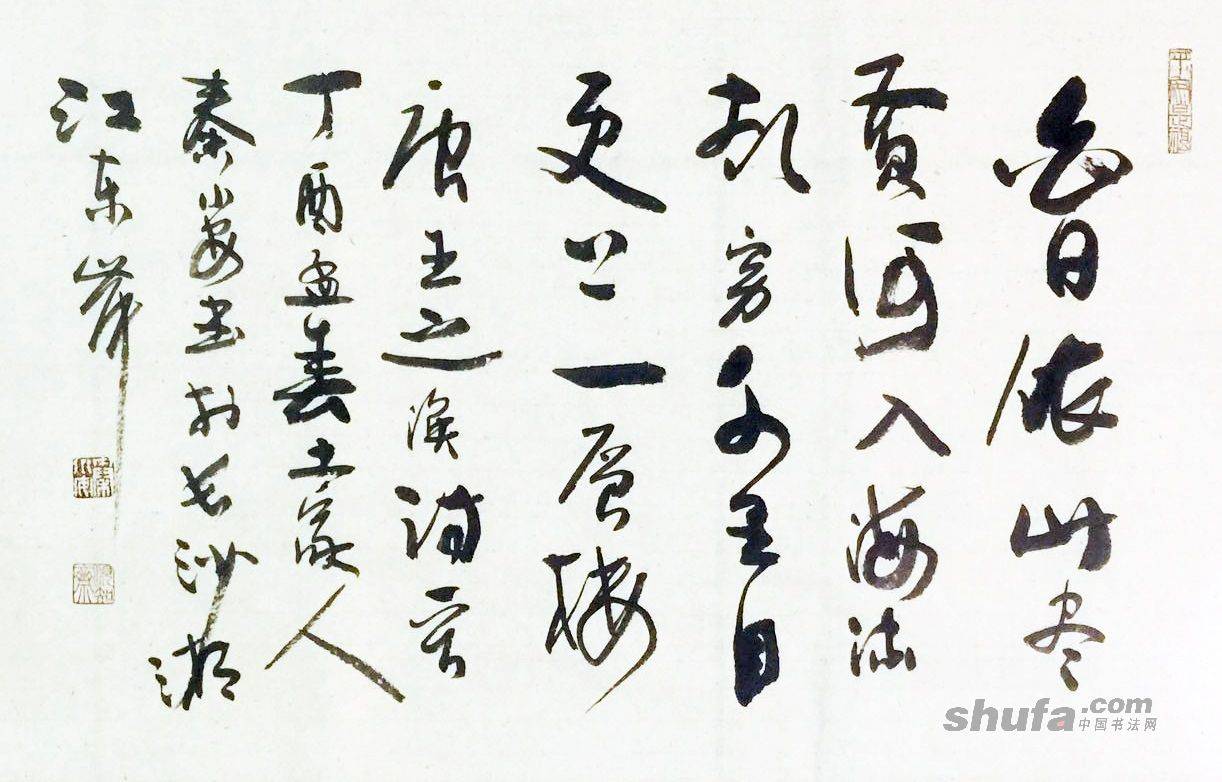 白日依山尽
黄河入海流
欲穷千里目
更上一层楼
唐王之涣诗
丁酉孟春土家人
秦小 书於长沙湘
江东岸
shufa.com
中国书法网